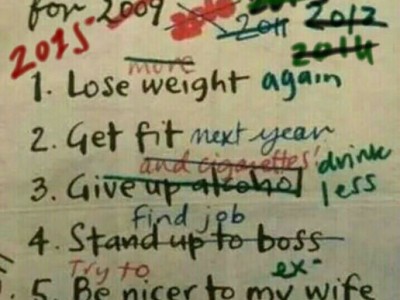 for 2009 2011 2012
2015 2014
more
1. Lose weight again
2. Get fit next year
and cigarettes! drink
3. Give up alcohol less
find job
4. Stand up to boss
Try to ex-
5. Be nicer to my wife